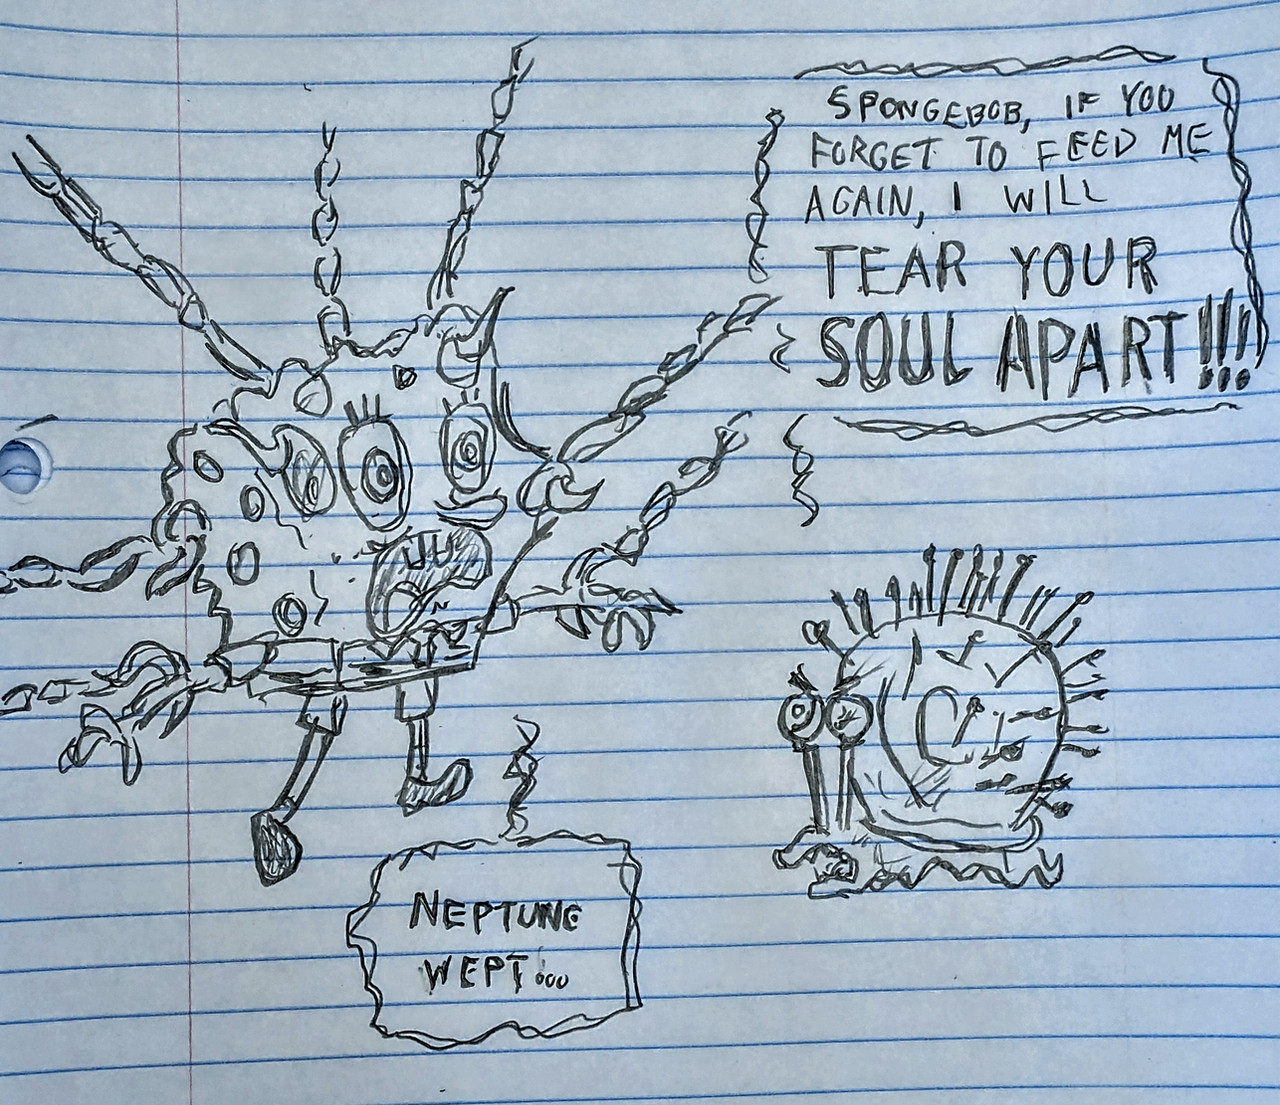 SPONGEBOB, IF YOU
FORGET TO FEED ME
AGAIN, I WILL
TEAR YOUR
SOUL APART!!!
NEPTUNE
WEPT...